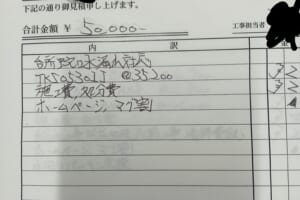 下記の通り御見積申し上げます。
合計金額 ¥ 50,000-
工事担当者
内 訳
台所蛇口水漏れ
@35200
施工費、処分費
ホームページ、マグ割